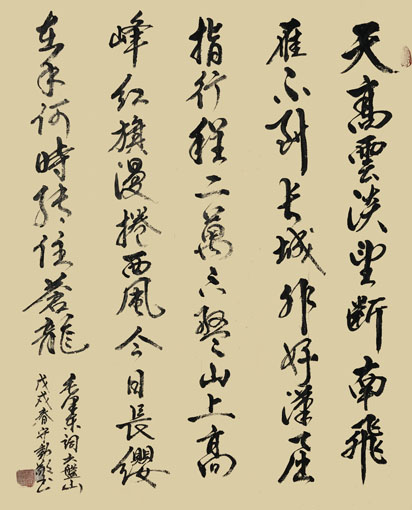 天高雲淡望斷南飛
雁不到长城非好漢屈
指行程二萬六盤山上高
峰红旗漫捲西風今日長纓
在手何時縛住蒼龍
毛澤東詞六盤山
戊戌春守